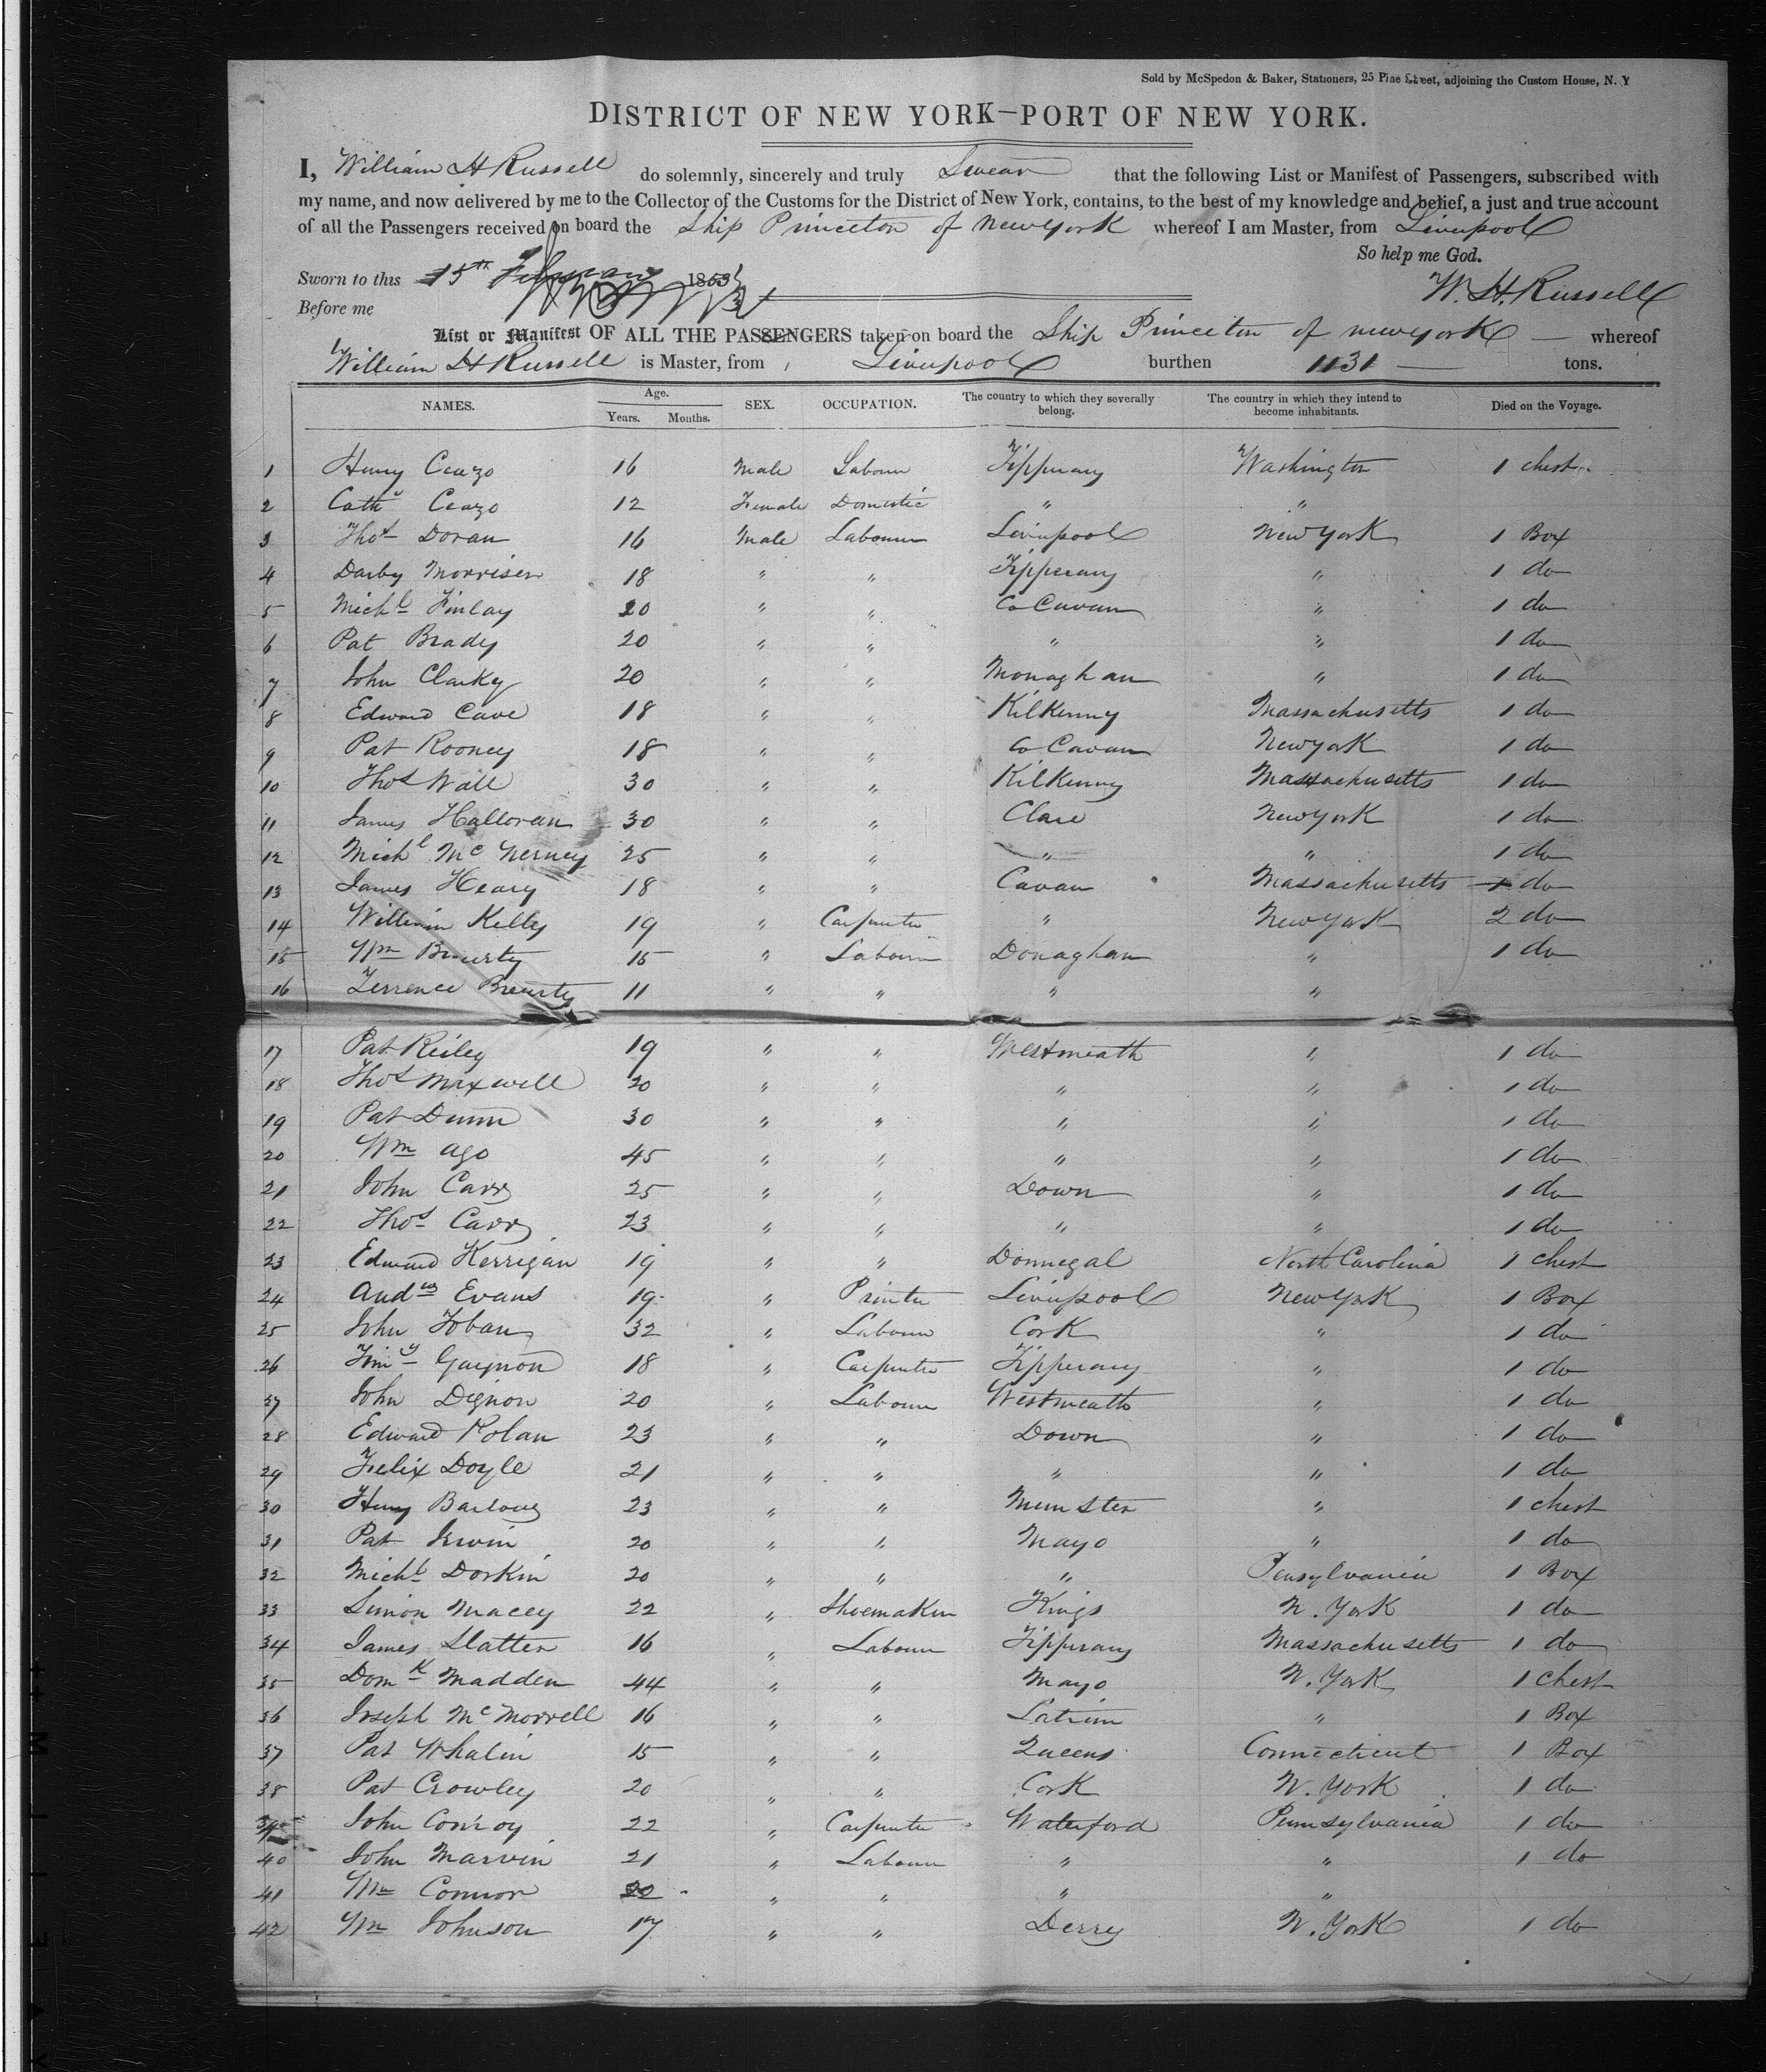 Sold by McSpedon & Baker, Stationers, 25 Pine Street, adjoining the Custom House, N. Y
DISTRICT OF NEW YORK—PORT OF NEW YORK.
I, William H Russell do solemnly, sincerely and truly Swear that the following List or Manifest of Passengers, subscribed with
my name, and now delivered by me to the Collector of the Customs for the District of New York, contains, to the best of my knowledge and belief, a just and true account
of all the Passengers received on board the Ship Princeton of New york whereof I am Master, from Liverpool
So help me God.
Sworn to this 15th February 1853
W. H. Russell
Before me
List or Manifest OF ALL THE PASSENGERS taken on board the Ship Princeton of new york — whereof
William H Russell is Master, from Liverpool burthen 1131 — tons.
NAMES. Age. Years. Months. SEX. OCCUPATION. The country to which they severally belong. The country in which they intend to become inhabitants. Died on the Voyage.
1 Henry 16 Male Labour Tipperary Washington 1 chest
2 Cath 12 Female Domestic " "
3 Thos Doran 16 Male Labour Liverpool New York 1 Box
4 Darby Morrisen 18 " " Tipperary " 1 do
5 Michl Finlay 20 " " Co Cavan " 1 do
6 Pat Brady 20 " " " " 1 do
7 John Clarky 20 " " Monaghan " 1 do
8 Edward Cave 18 " " KilKenny Massachusetts 1 do
9 Pat Rooney 18 " " Co Cavan New york 1 do
10 Thos Wall 30 " " KilKenny Massachusetts 1 do
11 James Halloran 30 " " Clare New york 1 do
12 Michl Mc Nerney 25 " " " " 1 do
13 James Heary 18 " " Cavan Massachusetts 1 do
14 William Kelly 19 " Carpenter " New York 2 do
15 Wm 15 " Labour Donaghan " 1 do
16 Terrence 11 " " " "
17 Pat Reiley 19 " " Westmeath " 1 do
18 Thos Maxwell 20 " " " " 1 do
19 Pat Dunn 30 " " " " 1 do
20 Wm ago 45 " " " " 1 do
21 John Carr 25 " " Down " 1 do
22 Thos Carr 23 " " " " 1 do
23 Edward Kerrigan 19 " " Donnegal North Carolina 1 chest
24 Andw Evans 19 " Printer Liverpool New York 1 Box
25 John Toban 32 " Labour Cork " 1 do
26 Timy Gaynon 18 " Carpenter Tipperary " 1 do
27 John Dignon 20 " Labour Westmeath " 1 do
28 Edward Polan 23 " " Down " 1 do
29 Felix Doyle 21 " " " " 1 do
30 Henry Barlow 23 " " Munster " 1 chest
31 Pat Irwin 20 " " Mayo " 1 do
32 Michl Dorkin 20 " " " Pensylvania 1 Box
33 Simon Macey 22 " Shoemaker Kings N. York 1 do
34 James Slatter 16 " Labour Tipperary Massachusetts 1 do
35 Domk Madden 44 " " Mayo N. York 1 chest
36 Joseph Mc Morrell 16 " " Latrim " 1 Box
37 Pat Whalin 15 " " Queens Connecticut 1 Box
38 Pat Crowley 20 " " Cork N. York 1 do
39 John Conroy 22 " Carpenter Waterford Pennsylvania 1 do
40 John Marvin 21 " Labour " " 1 do
41 Wm Connor 20 " " " "
42 Wm Johnson 17 " " Derry N. York 1 do